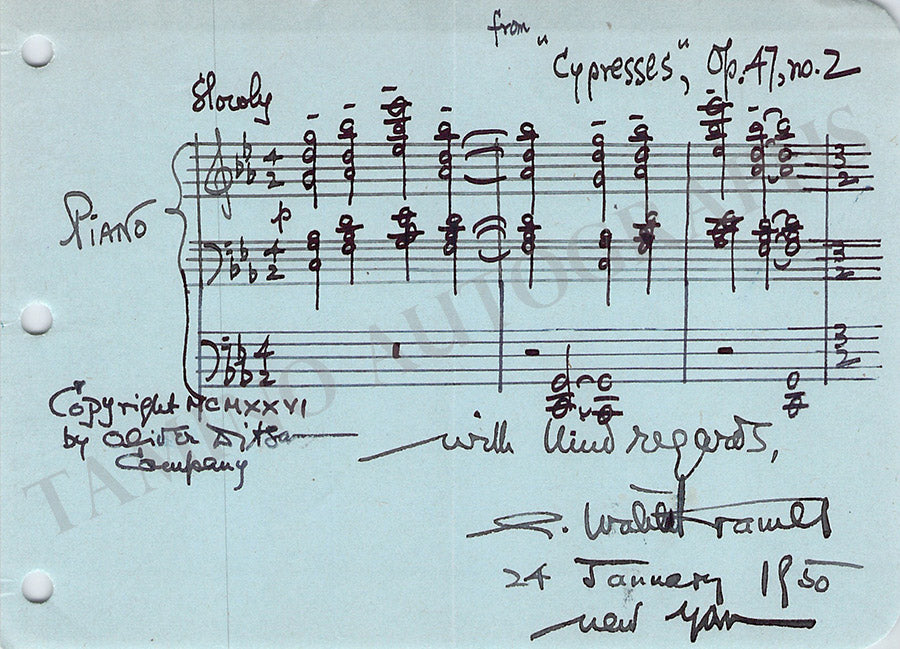 from
"Cypresses", Op. 47, no. 2
Slowly
PIANO
p
Copyright MCMXXVI
by Oliver Ditson
Company
with kind regards,
A. Walter Kramer
24 January 1950
New York
TAMINO AUTOGRAPHS